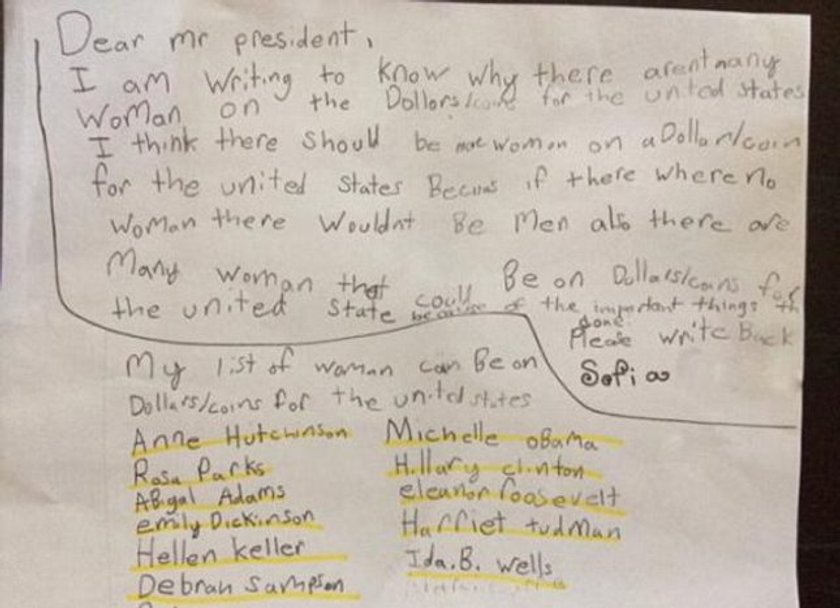 Dear mr president,
I am Writing to know why there arent many
WoMan on the Dollors/coins for the united states
I think there should be more women on a Dollar/coin
for the united states Becuas if there where no
Woman there Wouldnt Be Men also there are
Many woman that could Be on Dollars/coins for
the united state because of the important things th
done.
Please write Back
Sofia
My list of woman can Be on
Dollars/coins for the united states
Anne Hutchinson
Rosa Parks
Abigal Adams
emily Dickinson
Hellen keller
Debrah Sampson
Michelle oBama
Hillary clinton
eleanor roosevelt
Harriet tudman
Ida.B. wells